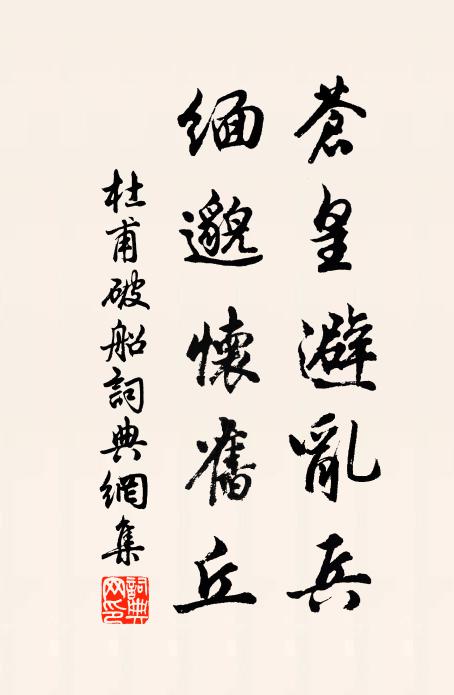 蒼皇避亂兵
緬邈懷舊丘
杜甫破船詞典網集
詞典網印